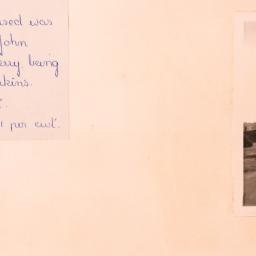 used was
John
erry, being
kins.
per cwt.